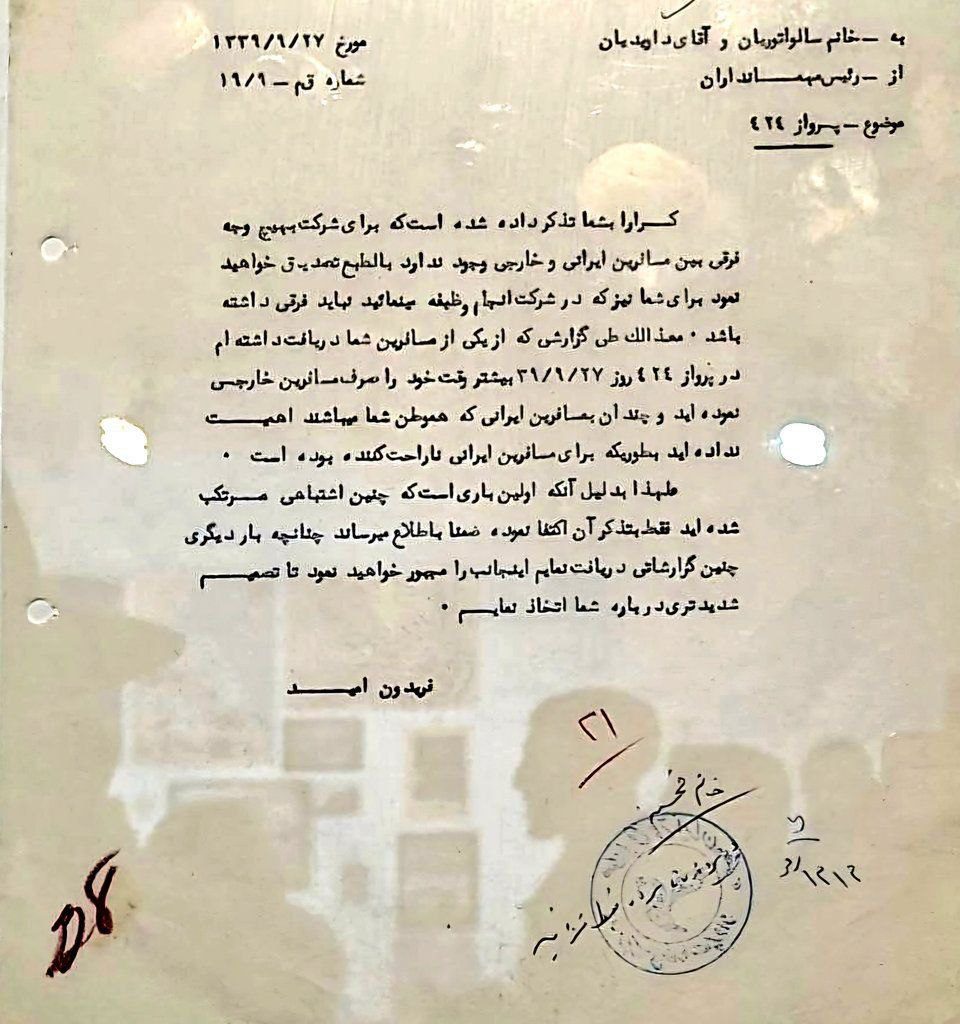 به - خانم سالواتوریان و آقای داویدیان
مورخ ۱۳۳۹/۹/۲۷
از - رئیس مهمانداران
شماره قم - ۱۹/۹
موضوع - پرواز ٤٢٤
کرارا بشما تذکر داده شده است که برای شرکت بهیچ وجه
فرقی بین مسافرین ایرانی و خارجی وجود ندارد بالطبع تصدیق خواهید
نمود برای شما نیز که در شرکت انجام وظیفه مینمائید نباید فرقی داشته
باشد . معذالك طی گزارشی که از یکی از مسافرین شما دریافت داشته ام
در پرواز ٤٢٤ روز ۳۹/۹/۲۷ بیشتر وقت خود را صرف مسافرین خارجی
نموده اید و چندان بمسافرین ایرانی که هموطن شما میباشند اهمیت
نداده اید بطوریکه برای مسافرین ایرانی ناراحت کننده بوده است .
علیهذا بدلیل آنکه اولین باری است که چنین اشتباهی مرتکب
شده اید فقط بتذکر آن اکتفا نموده ضمنا باطلاع میرساند چنانچه بار دیگری
چنین گزارشاتی دریافت نمایم اینجانب را مجبور خواهید نمود تا تصمیم
شدیدتری درباره شما اتخاذ نمایم .
فریدون امید
۳۱
D8